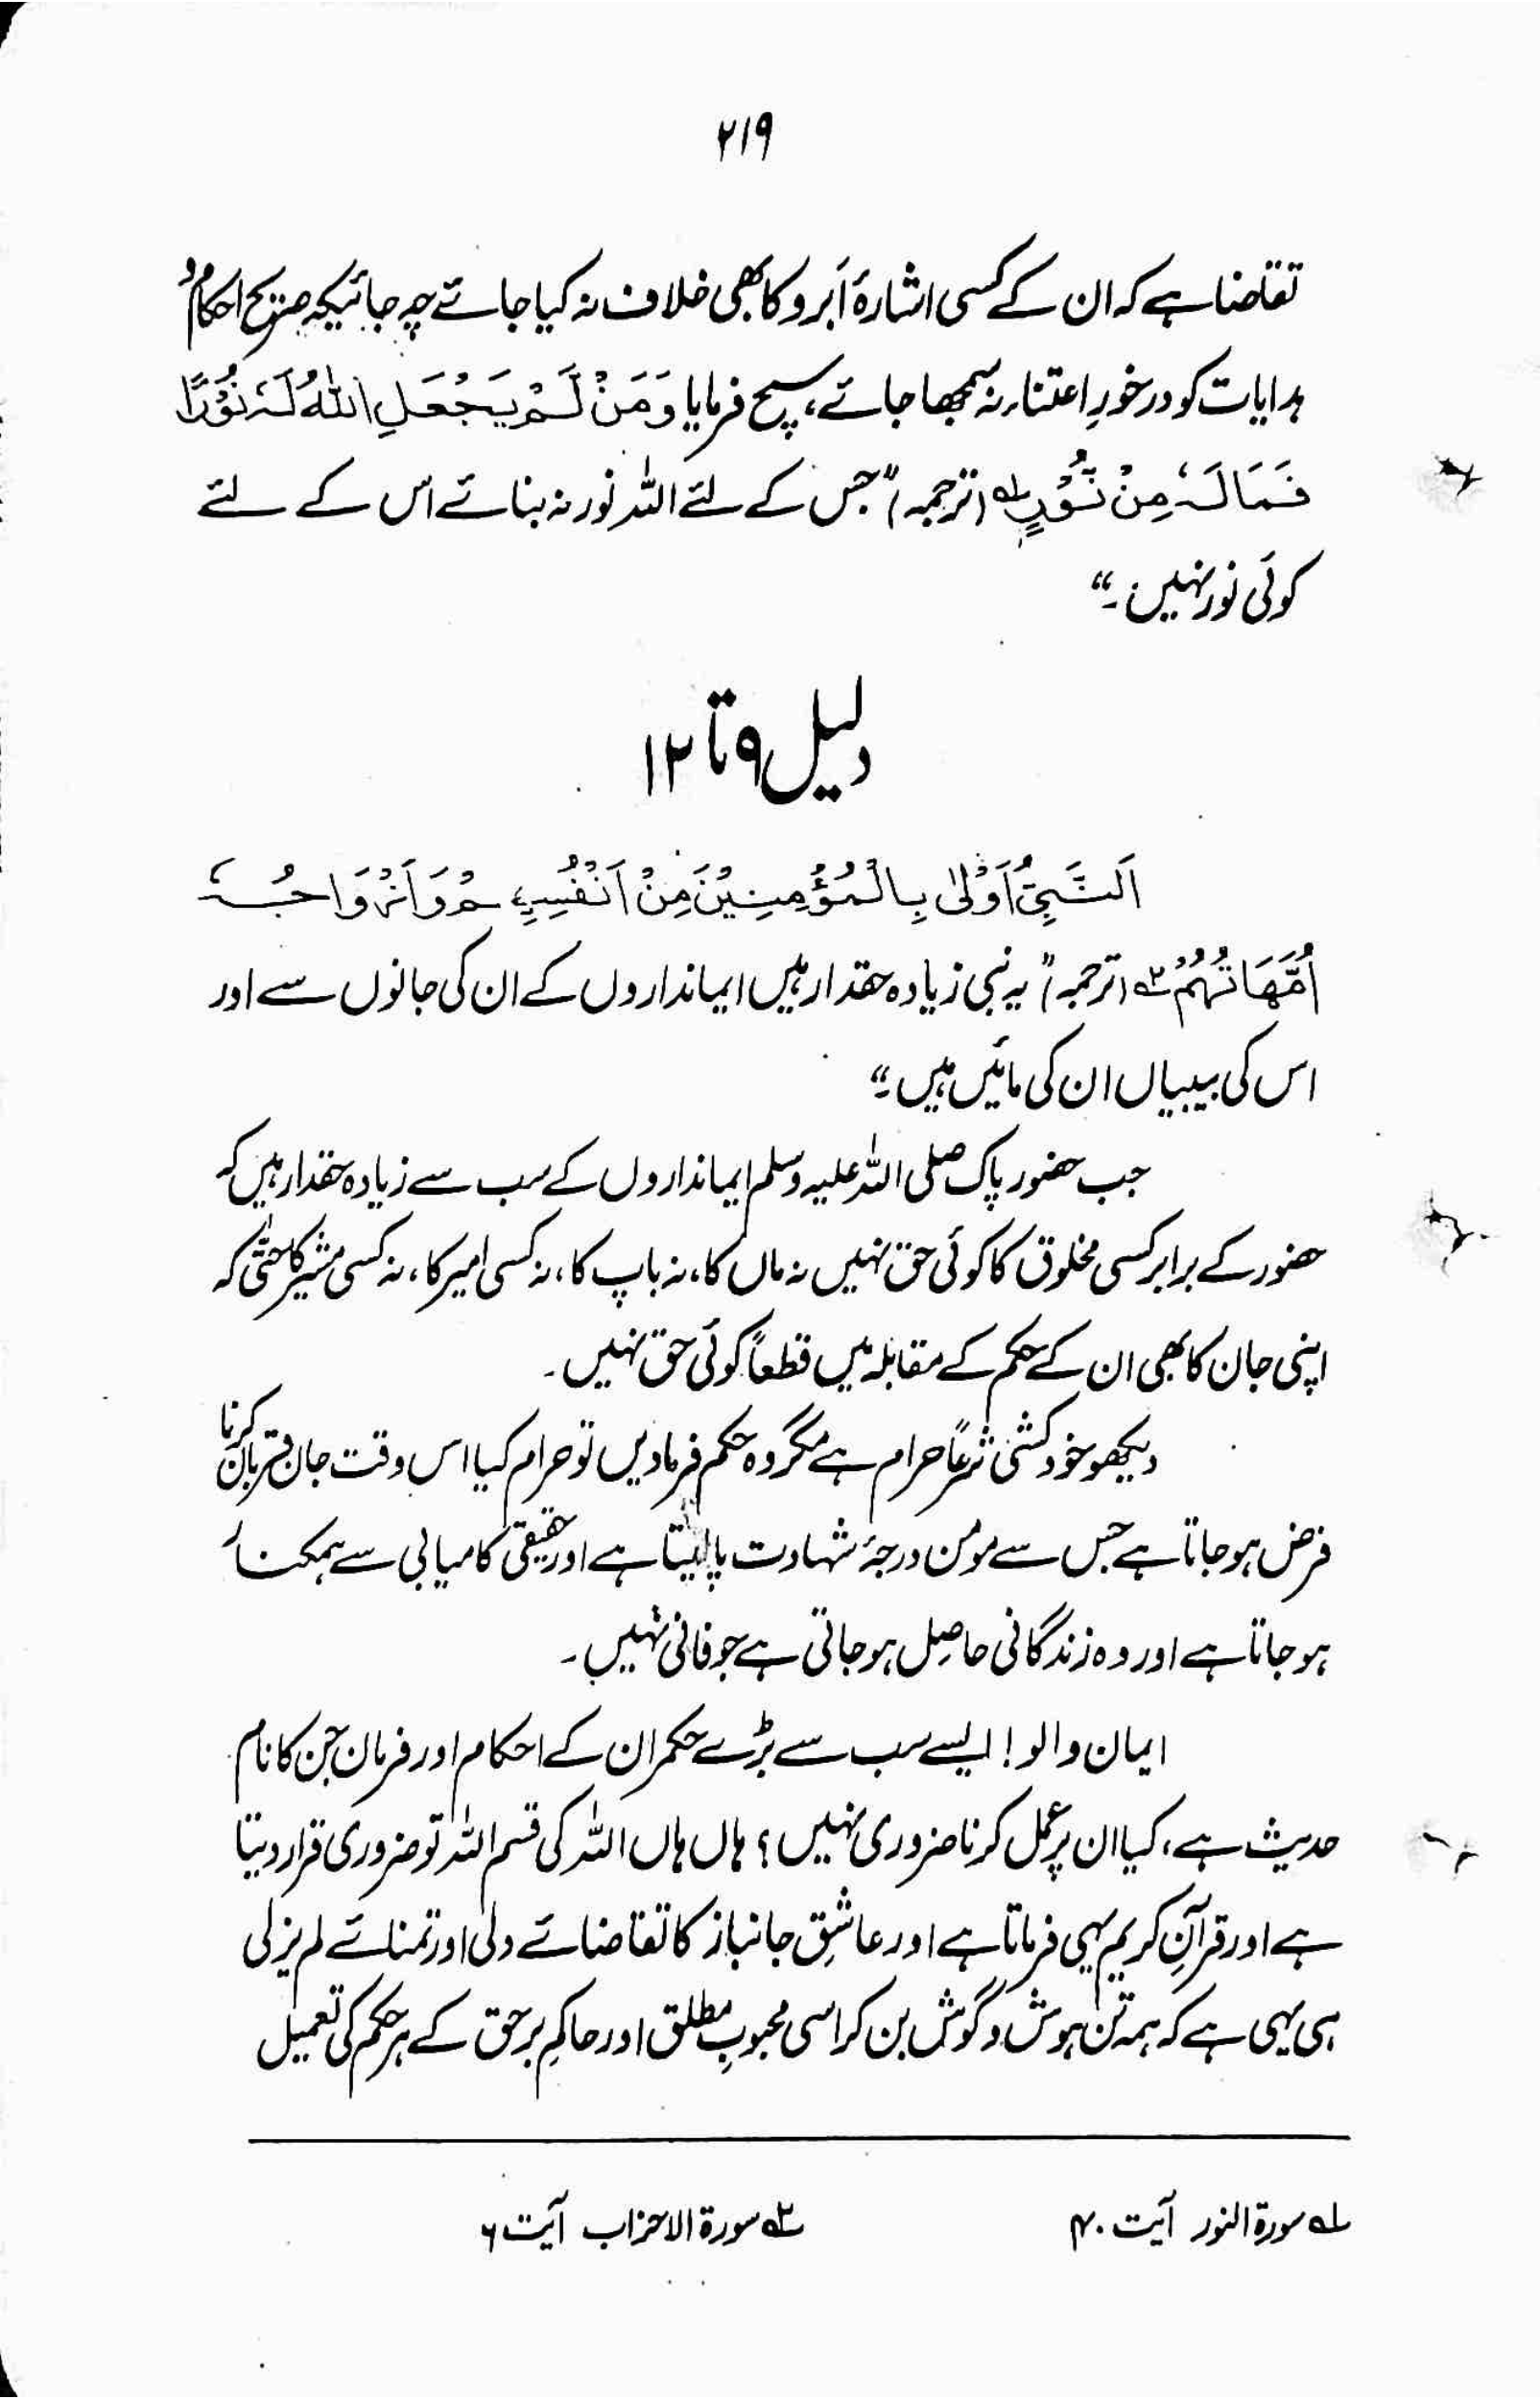 ۲۱۹
تقاضا ہے کہ ان کے کسی اشارۂ اَبرو کا بھی خلاف نہ کیا جائے چہ جائیکہ صریح احکام و
ہدایات کو درخورِ اعتناء نہ سمجھا جائے، سچ فرمایا وَمَنْ لَّمْ یَجْعَلِ اللّٰہُ لَہٗ نُوْرًا
فَمَا لَہٗ مِنْ نُّوْرٍ ؎۱ (ترجمہ) ”جس کے لئے اللہ نور نہ بنائے اس کے لئے
کوئی نور نہیں۔“
دلیل ۹ تا ۱۲
اَلنَّبِیُّ اَوْلٰی بِالْمُؤْمِنِیْنَ مِنْ اَنْفُسِہِمْ وَاَزْوَاجُہٗ
اُمَّھَاتُہُمْ ؎۲ (ترجمہ) ”یہ نبی زیادہ حقدار ہیں ایمانداروں کے ان کی جانوں سے اور
اس کی بیبیاں ان کی مائیں ہیں۔“
جب حضور پاک صلی اللہ علیہ وسلم ایمانداروں کے سب سے زیادہ حقدار ہیں کہ
حضور کے برابر کسی مخلوق کا کوئی حق نہیں نہ ماں کا، نہ باپ کا، نہ کسی امیر کا، نہ کسی مشیر کا حتّٰی کہ
اپنی جان کا بھی ان کے حکم کے مقابلہ میں قطعاً کوئی حق نہیں۔
دیکھو خودکشی شرعاً حرام ہے مگر وہ حکم فرمادیں تو حرام کیا اس وقت جان قربان کرنا
فرض ہو جاتا ہے جس سے مومن درجۂ شہادت پالیتا ہے اور حقیقی کامیابی سے ہمکنار
ہو جاتا ہے اور وہ زندگانی حاصِل ہو جاتی ہے جو فانی نہیں۔
ایمان والو! ایسے سب سے بڑے حکمران کے احکام اور فرمان جن کا نام
حدیث ہے، کیا ان پر عمل کرنا ضروری نہیں؟ ہاں ہاں اللہ کی قسم اللہ تو ضروری قرار دیتا
ہے اور قرآنِ کریم یہی فرماتا ہے اور عاشِقِ جانباز کا تقاضائے دلی اور تمنائے لم یزلی
ہی یہی ہے کہ ہمہ تن ہوش و گوش بن کر اسی محبوبِ مطلق اور حاکمِ برحق کے ہر حکم کی تعمیل
؎۱ سورۃ النور آیت ۴۰
؎۲ سورۃ الاحزاب آیت ۶